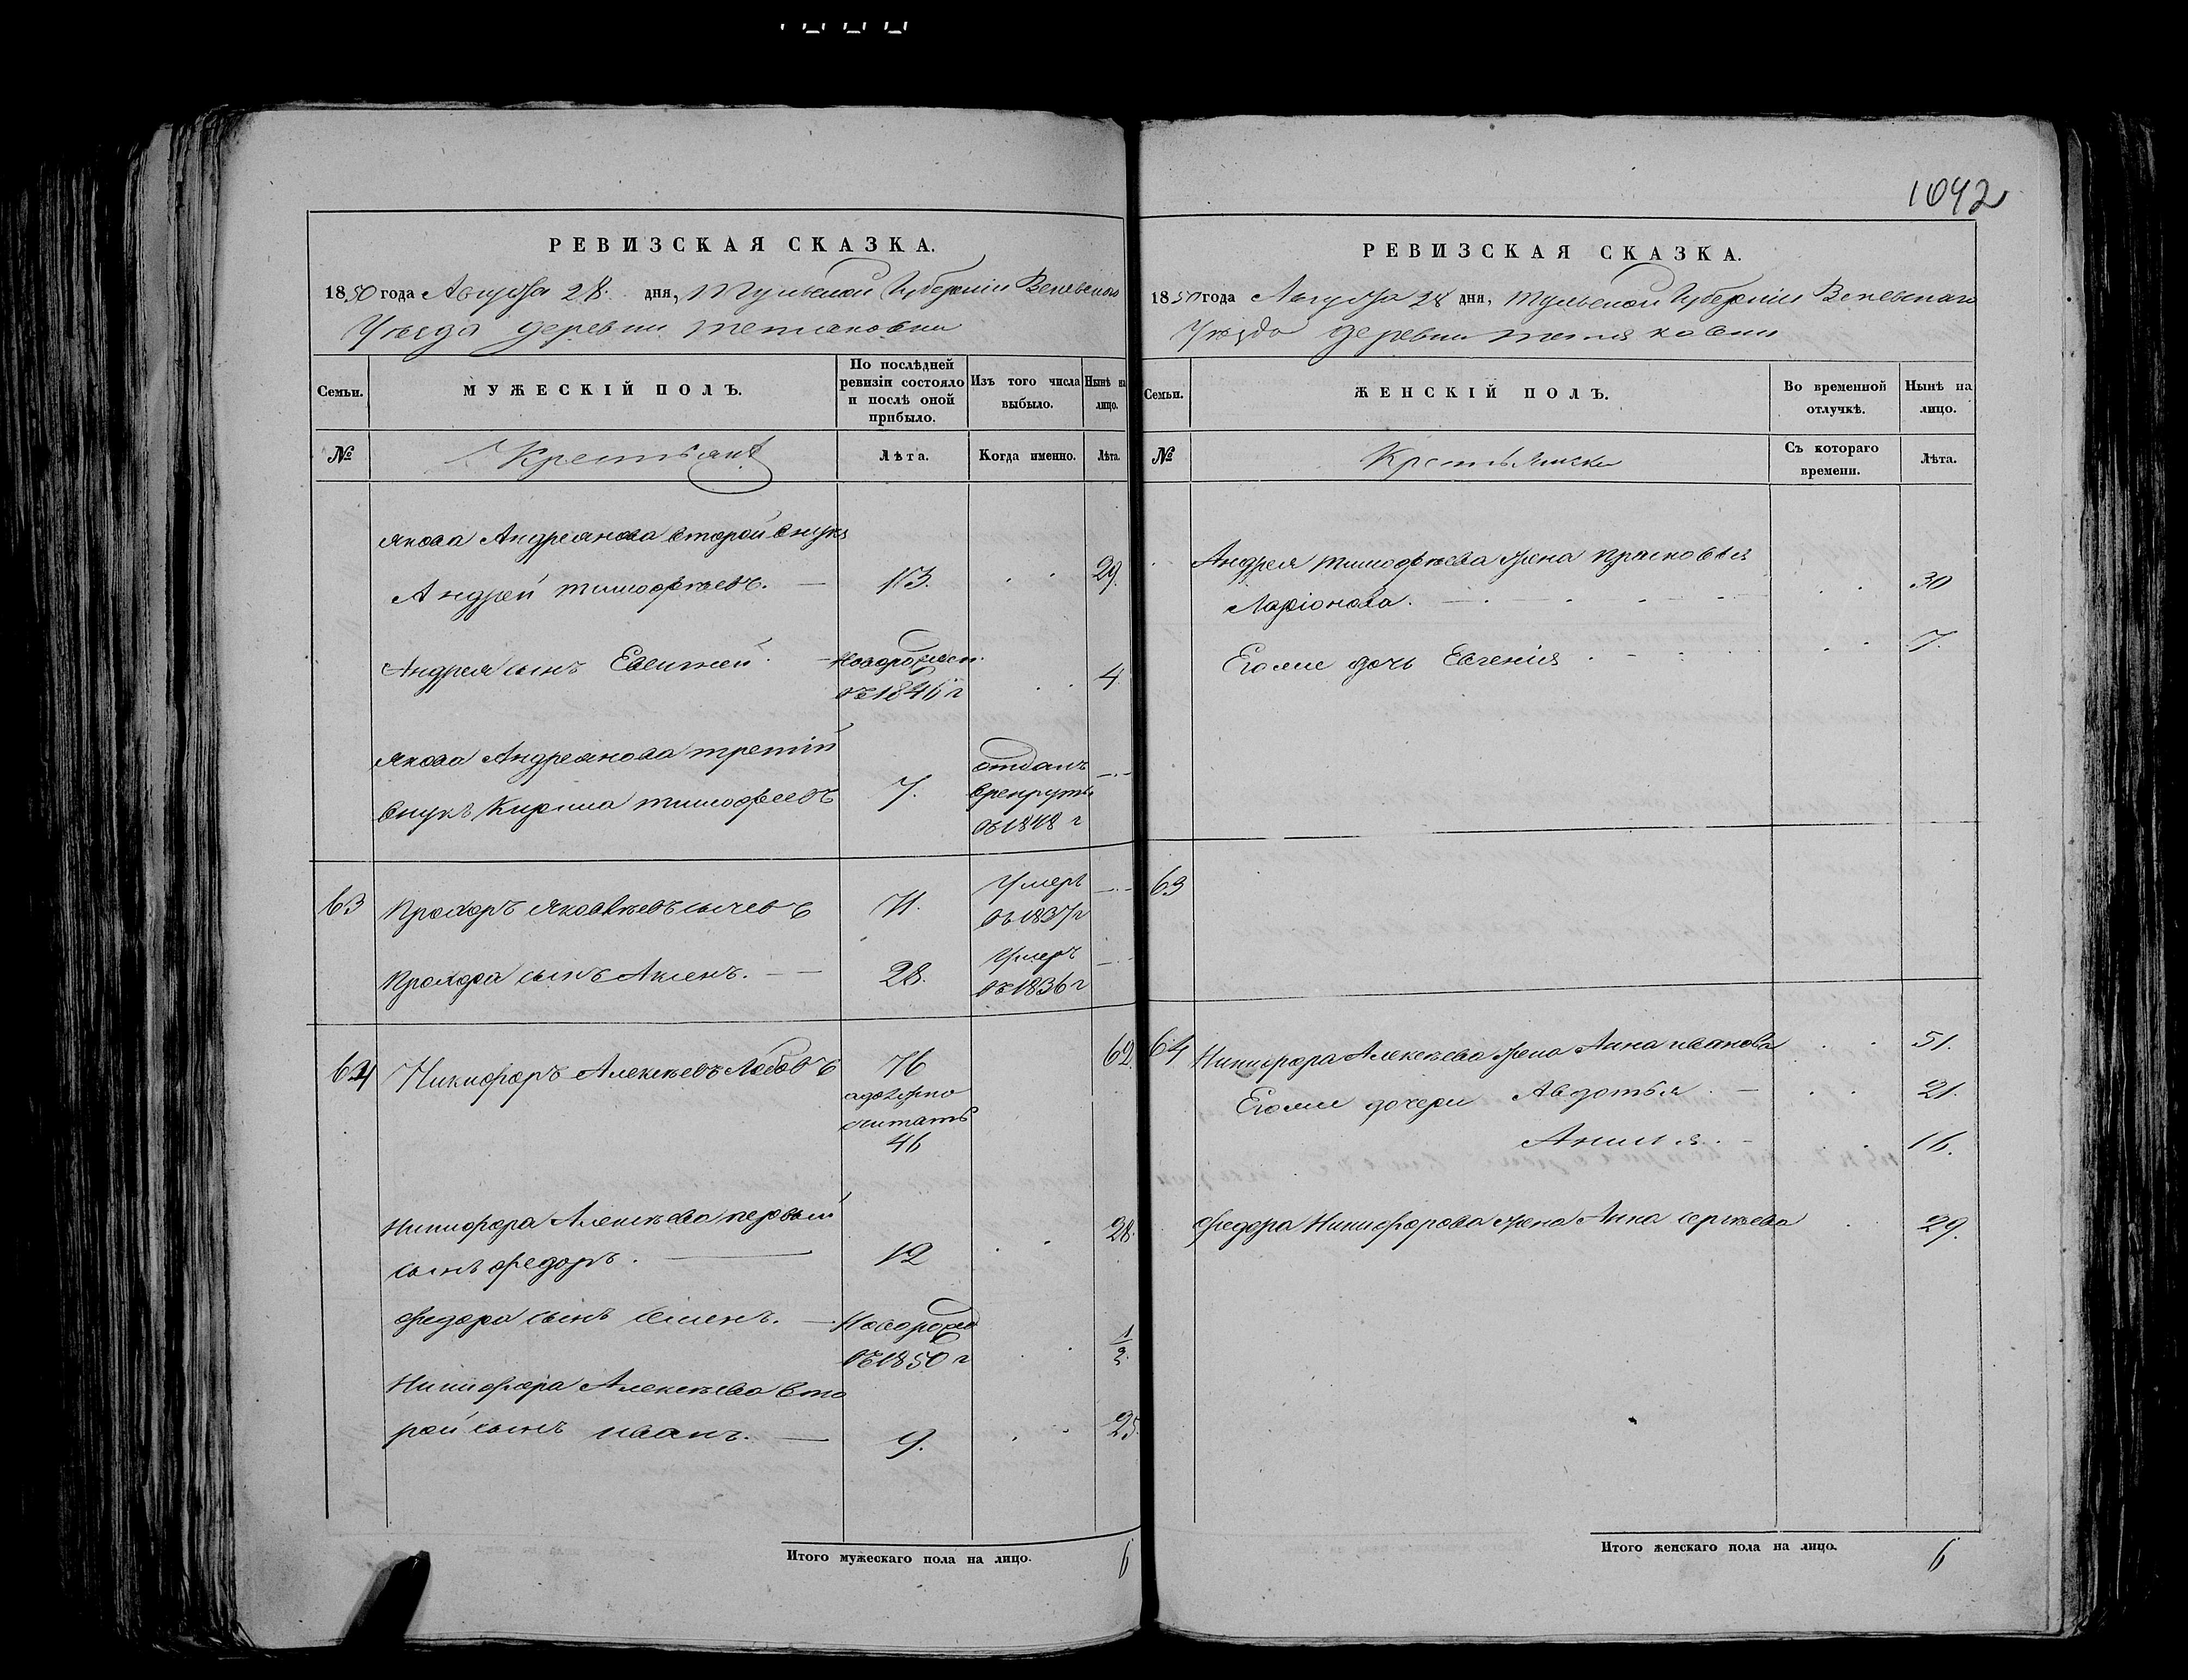 1042
РЕВИЗСКАЯ СКАЗКА.
1850 года Августа 28 дня, Тульской Губерніи Веневскаго
Уѣзда деревни Тетяковки
Семьи.
МУЖЕСКІЙ ПОЛЪ.
По послѣдней ревизіи состояло и послѣ оной прибыло.
Изъ того числа выбыло.
Нынѣ на лицо.
№
Крестьянѣ
Лѣта.
Когда именно.
Лѣта.
Якова Андреянова второй внукъ
Андрей Тимофѣевъ. 13. 29.
Андрея сынъ Евтихей Новорожден.
въ 1846 г 4
Якова Андреянова третій
внукъ Кирила Тимофеевъ 7. отданъ
врекруты
въ 1848 г
63 Прохоръ Яковлевъ Сычевъ 71. Умеръ
въ 1837 г
Прохора сынъ 28. Умеръ
въ 1836 г
64 Никифоръ Алексѣевъ Лобовъ 76 62.
а должно
считать
46
Никифора Алексѣева первый
сынъ Федоръ. 12 28.
Федора сынъ Семенъ. Новорожд
въ 1850 г 1/2
Никифора Алексѣева вто
рой сынъ Иванъ. 9. 25.
Итого мужескаго пола на лицо. 6
РЕВИЗСКАЯ СКАЗКА.
1850 года Августа 28 дня, Тульской Губерніи Веневскаго
Уѣзда деревни Тетяковки
Семьи.
ЖЕНСКІЙ ПОЛЪ.
Во временной отлучкѣ.
Нынѣ на лицо.
№
Крестьянски
Съ котораго времени.
Лѣта.
Андрея Тимофѣева жена Прасковья
Ларіонова. 30
Егоже дочь Евгенія 7.
63
64 Никифора Алексѣева жена Анна Иванова 51.
Егоже дочери Авдотья 21.
Анисья 16.
Федора Никифорова жена Анна Сергѣева 29.
Итого женскаго пола на лицо. 6